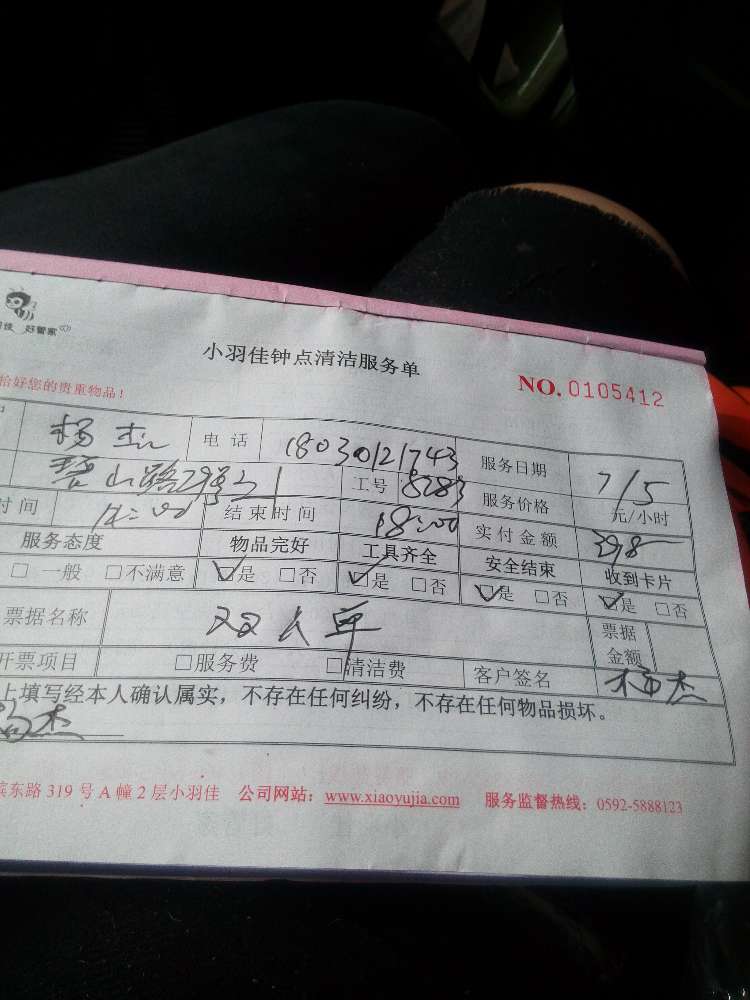 好管家
小羽佳钟点清洁服务单
NO. 0105412
恰好您的贵重物品！
杨杰 电话 18030121743 服务日期 7/5
工号 8283 服务价格 元/小时
时间 结束时间 18:00 实付金额
服务态度 物品完好 工具齐全 安全结束 收到卡片
□一般 □不满意 ☑是 □否 ☑是 □否 ☑是 □否 ☑是 □否
票据名称 双人单 票据金额
开票项目 □服务费 □清洁费 客户签名 杨杰
上填写经本人确认属实，不存在任何纠纷，不存在任何物品损坏。
杨杰
滨东路 319 号 A 幢 2 层小羽佳 公司网站：www.xiaoyujia.com 服务监督热线：0592-5888123